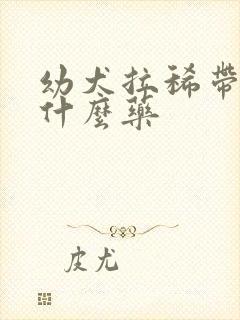 幼犬拉稀带
什麼药
皮尤